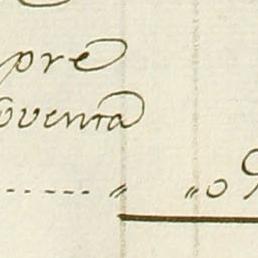 pre
oventa
------ " " 09